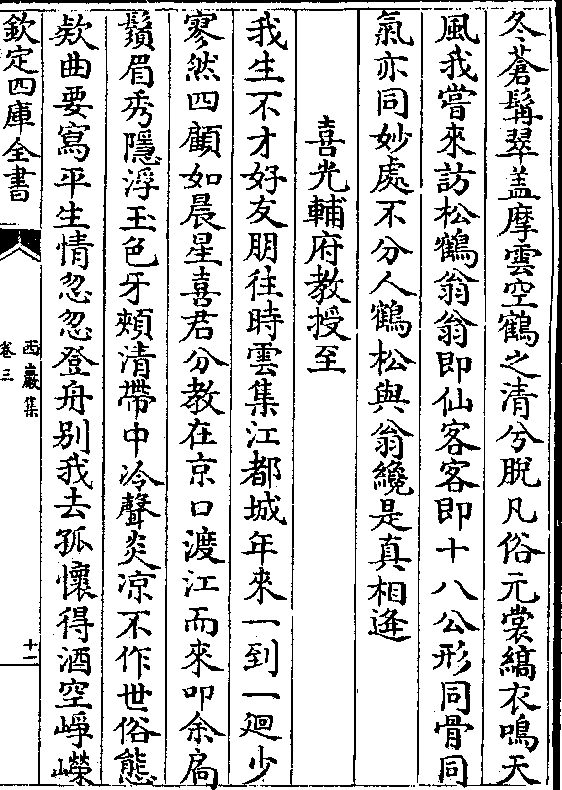 冬蒼髯翠盖摩雲空鶴之清兮脫凡俗元裳縞衣鳴天
風我嘗來訪松鶴翁翁即仙客客即十八公形同骨同
氣亦同妙處不分人鶴松與翁纔是真相逄
喜光輔府教授至
我生不才好友朋往時雲集江都城年來一到一廻少
寥然四顧如晨星喜君分教在京口渡江而來叩余扃
鬚眉秀隱浮玉色牙頰清帶中泠聲炎凉不作世俗態
欵曲要寫平生情忽忽登舟别我去孤懷得酒空崢嶸
欽定四庫全書
西巖集
卷三
十一